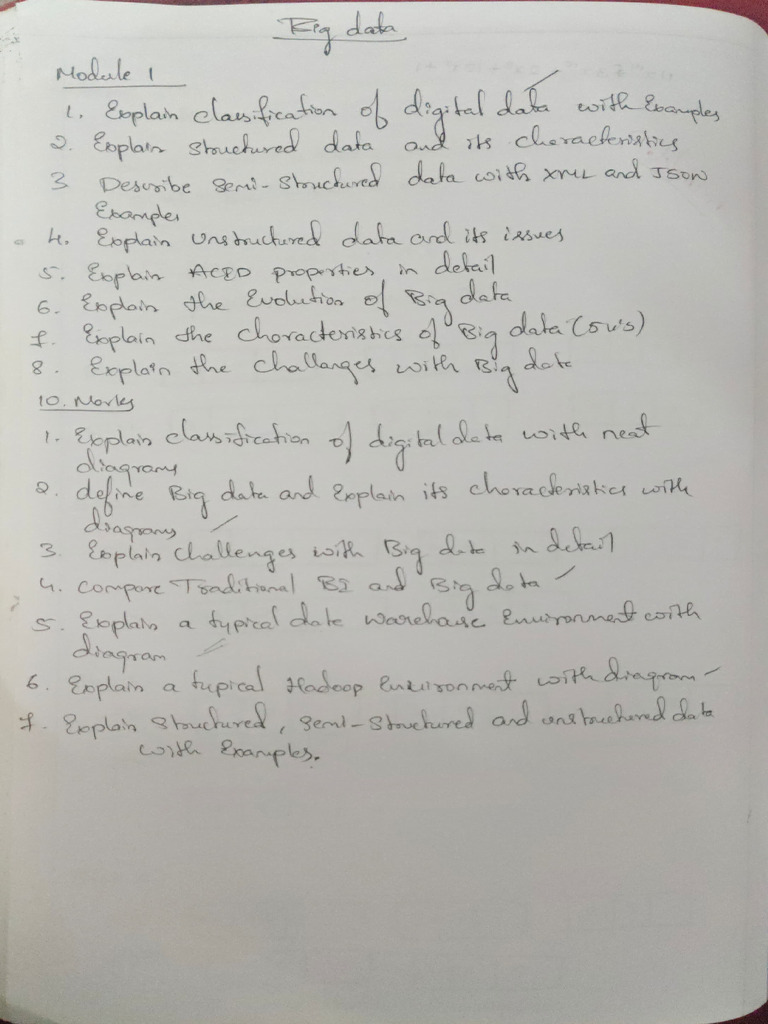 Big data
Module 1
1. Explain classification of digital data with Examples
2. Explain structured data and its characteristics
3 Describe Semi-Structured data with XML and JSON
Examples
4. Explain unstructured data and its issues
5. Explain ACID properties in detail
6. Explain the Evolution of Big data
7. Explain the characteristics of Big data (5v's)
8. Explain the challanges with Big data
10. Marks
1. Explain classification of digital data with neat
diagrams
2. define Big data and Explain its characteristics with
diagrams
3. Explain challenges with Big data in detail
4. compare Traditional BI and Big data
5. Explain a typical data warehouse Environment with
diagram
6. Explain a typical Hadoop Environment with diagram
7. Explain structured, Semi-Structured and unstructured data
with Examples.